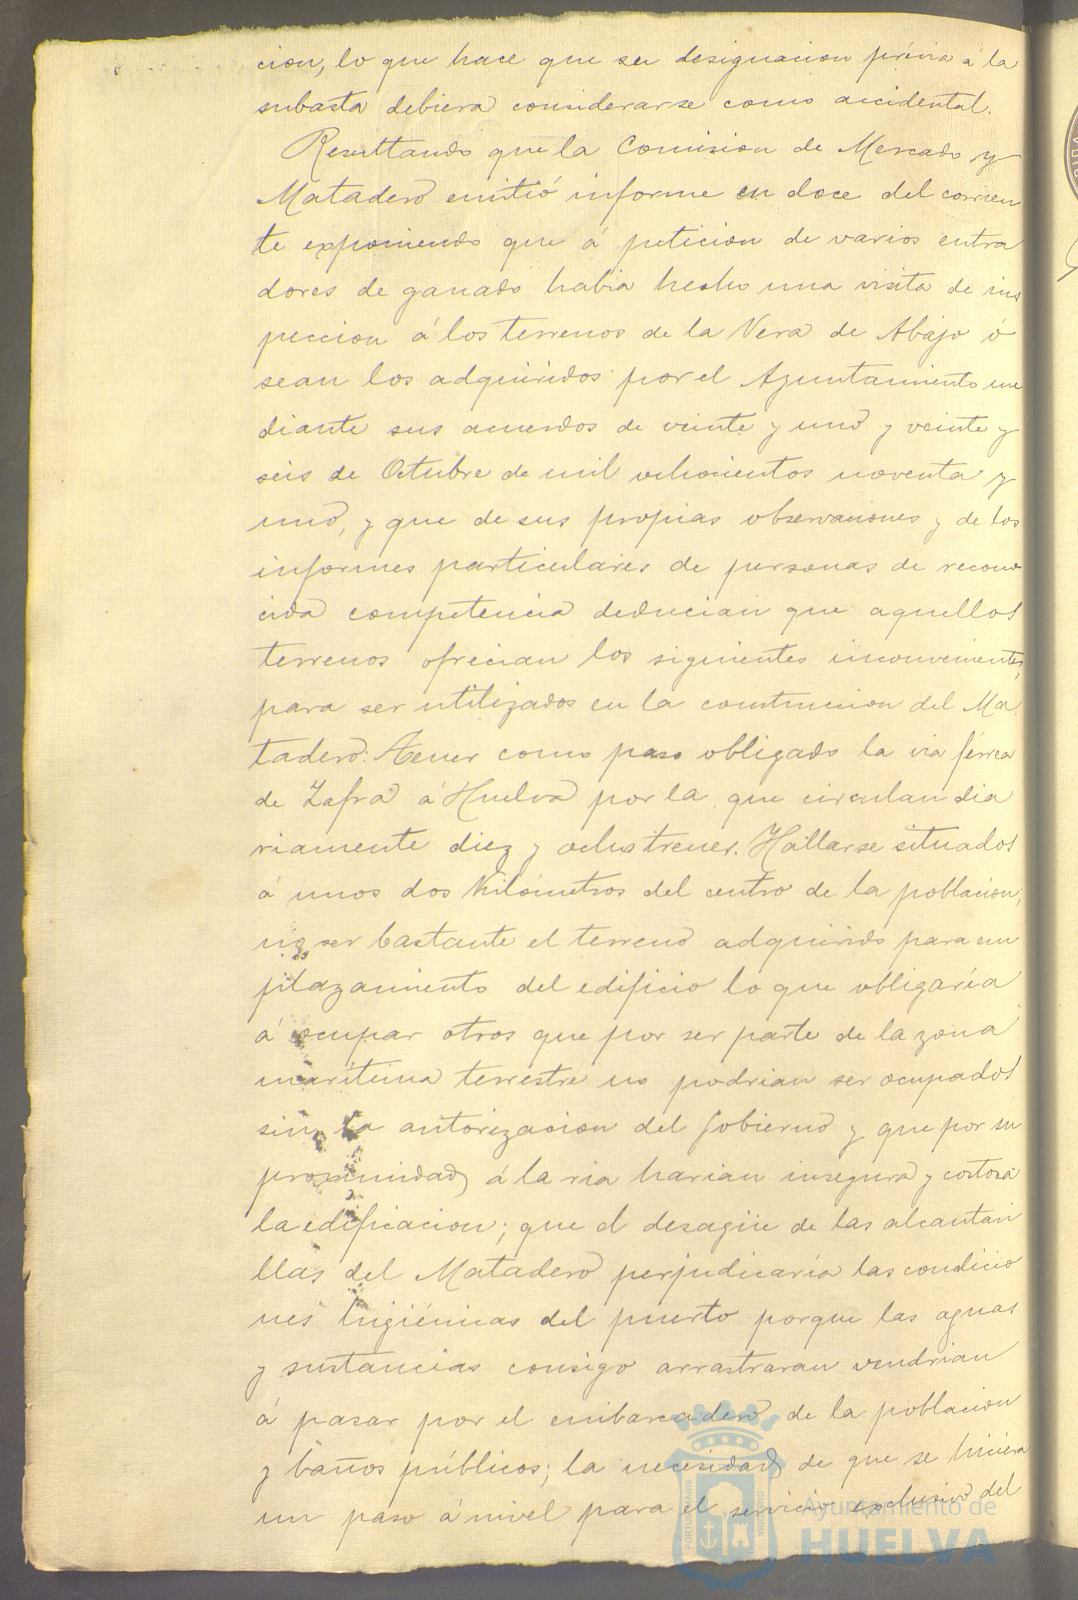 cion, lo que hace que su designacion prévia á la
subasta debiera considerarse como accidental.
Resultando que la Comision de Mercado y
Matadero emitió informe en doce del corrien
te exponiendo que á peticion de varios entra
dores de ganado habia hecho una visita de ins
peccion á los terrenos de la Vera de Abajo ó
sean los adquiridos por el Ayuntamiento me
diante sus acuerdos de veinte y uno y veinte y
seis de Octubre de mil ochocientos noventa y
uno, y que de sus propias observaciones y de los
informes particulares de personas de recono
cida competencia deducian que aquellos
terrenos ofrecian los siguientes inconvenientes
para ser utilizados en la construccion del Ma
tadero: Tener como paso obligado la via férrea
de Zafra á Huelva por la que circulan dia
riamente diez y ocho trenes. Hallarse situados
á unos dos Kilómetros del centro de la poblacion,
no ser bastante el terreno adquirido para em
plazamiento del edificio lo que obligaría
á ocupar otros que por ser parte de la zona
marítima terrestre no podrian ser ocupados
sin la autorizacion del Gobierno y que por su
proximidad á la ria harian insegura y costosa
la edificacion; que el desagüe de las alcantari
llas del Matadero perjudicaría las condicio
nes higiénicas del puerto porque las aguas
y sustancias consigo arrastraran vendrian
á pasar por el embarcadero de la poblacion
y baños públicos; la necesidad de que se hiciera
un paso á nivel para el servicio exclusivo del
Ayuntamiento de
HUELVA